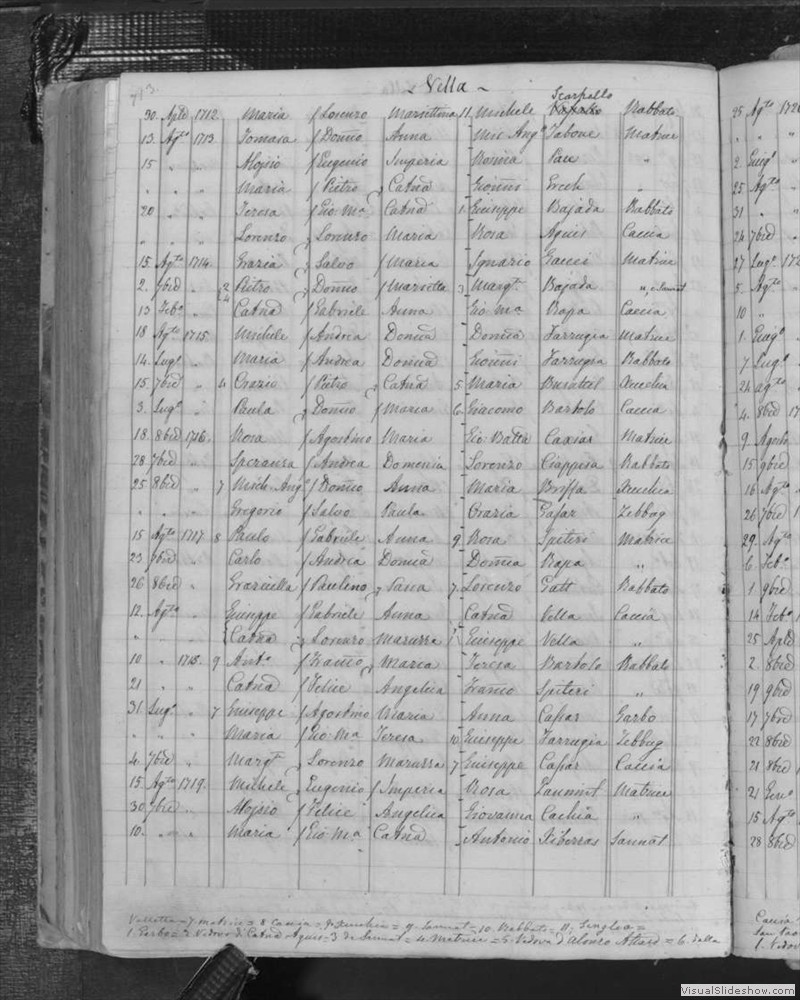 Villa
Scarpello
30. Aple 1712 Maria f Lorenzo Mariettina 11. Michele Rabbato
13. Agto 1713 Tomasa f Domco Anna Mic Ango Tabone Matrice
15 Aloisio f Eugenio Imperia Romia Pace "
" " " Maria f Pietro Catna Gionni Ercoli "
20 " " Teresa f Gio: Ma Catna 1. Giuseppe Bajada Rabbato
" " " Lorenzo Lorenzo Maria Rosa Agius Caccia
15. Agto 1714 Grazia f Salvo f Maria Ignazio Gauci Matrice
2. 7bre " Pietro Domco f Marietta 3 Margta Bajada " e Sannat
13 Febo " Catna f Gabriele Anna Gio: Ma Rapa Caccia
18 Agto 1715. Michele f Andrea Domca Domca Farrugia Matrice
14. Lugo " Maria f Andrea Domca Gionni Farrugia Rabbato
15. 7bre " 4 Orazio f Pietro Catna 5 Maria Xuechia
3. Lugo " Paula Domco f Maria 6. Giacomo Bartolo Caccia
18. 8bre 1716. Rosa f Agostino Maria Gio: Batta Caxiar Matrice
28 7bre " Speranza f Andrea Domenica Lorenzo Ciappisa Rabbato
25 8bre 7 Mich. Ango f Domco Anna Maria Briffa Xuechia
" " " Gregorio f Salvo Paula Grazia Gafar Zebbug
15 Agto 1717 8 Paulo f Gabriele Anna 9. Rosa Spiteri Matrice
23 7bre " Carlo f Andrea Domca Domca Rapa "
26 8bre " Graziella f Paulino Vana 7. Lorenzo Gatt Rabbato
12. Agto " Giuseppe f Gabriele Anna Catna Vella Caccia
" " " Catna Lorenzo Maruzza Giuseppe Vella "
10 " 1718. 9 Anto f Franco Maria Teresa Bartolo Rabbato
21 " " Catna f Felice Angelica Franco Spiteri "
31. Lugo " 7 Giuseppe f Agostino Maria Anna Cafar Garbo
" " " Maria f Gio: Ma Teresa 10 Giuseppe Farrugia Zebbug
4. 7bre " Margta Lorenzo Maruzza 7 Giuseppe Cafar Caccia
15. Agto 1719. Michele Eugenio f Imperia Rosa Zammit Matrice
30 7bre " Aloisio f Felice Angelica Giovanna Cachia "
10. " " Maria f Gio: Ma Catna Antonio Xiberras Sannat
Valletta = 7. Matrice = 8 Caccia = 9. Xuechia = 9. Sannat = 10. Rabbato = 11. Senglea =
1. Garbo = 2. Vedovo di Catna Agius = 3 da Sannat = 4. Matrice = 5. Vedova d'Alonzo Attard = 6. dalla
25 Agto
2. Giugo
25 Agto
31
24 7bre
27 Lugo
5. Agto
10
1. Giugo
7 Lugo
24 agto
4. 8bre
9. Agosto
15 9bre
16 Agto
26 7bre
29. Agto
6 Febo
1. 9bre
14 Febo
25 Aple
2. 8bre
19 9bre
17 7bre
22 8bre
21 8bre
21 Geno
15 Agto
28 8bre
Caccia
1. Vedovo
VisualSlideshow.com